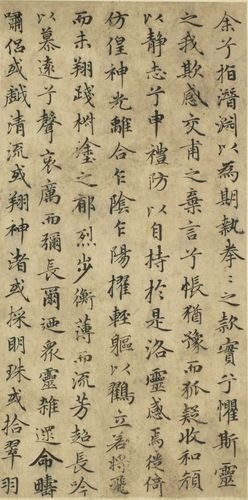 余兮指潛淵以為期執拳〻之欵實兮懼斯靈
之我欺感交甫之棄言兮悵猶豫而狐疑收和顏
以静志兮申禮防以自持於是洛靈感焉徙倚
仿偟神光離合乍陰乍陽擢輕軀以鶴立若將飛
而未翔踐椒塗之郁烈步衡薄而流芳超長吟
以慕遠兮聲哀厲而彌長爾迺衆靈雜遝命疇
嘯侶或戲清流或翔神渚或採明珠或拾翠羽